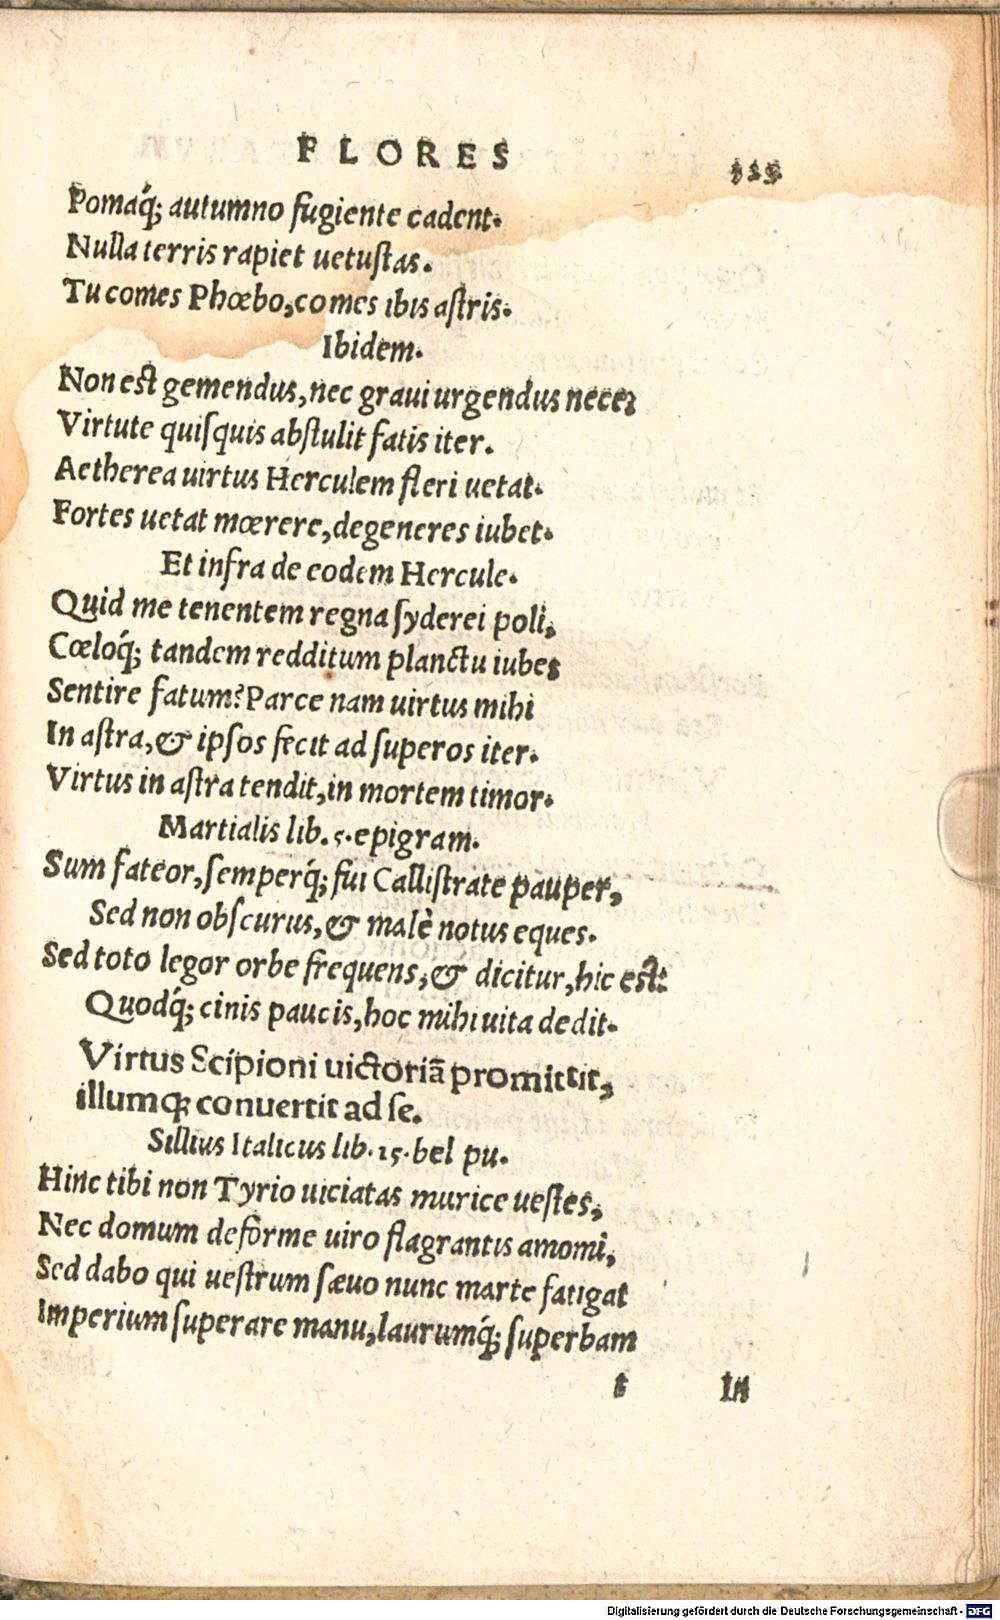 FLORES
Pomaq́; autumno fugiente cadent.
Nulla terris rapiet uetustas.
Tu comes Phœbo, comes ibis astris.
Ibidem.
Non est gemendus, nec graui urgendus nece,
Virtute quisquis abstulit fatis iter.
Aetherea uirtus Herculem fleri uetat.
Fortes uetat mœrere, degeneres iubet.
Et infra de eodem Hercule.
Quid me tenentem regna syderei poli,
Cœloq́; tandem redditum planctu iubes
Sentire fatum? Parce nam uirtus mihi
In astra, & ipsos fecit ad superos iter.
Virtus in astra tendit, in mortem timor.
Martialis lib. 5. epigram.
Sum fateor, semperq́; fui Callistrate pauper,
Sed non obscurus, & malè notus eques.
Sed toto legor orbe frequens, & dicitur, hic est:
Quodq́; cinis paucis, hoc mihi uita dedit.
Virtus Scipioni uictoriā promittit,
illumq; conuertit ad se.
Sillius Italicus lib. 15. bel pu.
Hinc tibi non Tyrio uiciatas murice uestes,
Nec domum deforme uiro flagrantis amomi,
Sed dabo qui uestrum sæuo nunc marte fatigat
Imperium superare manu, laurumq́; superbam
t In
Digitalisierung gefördert durch die Deutsche Forschungsgemeinschaft - DFG